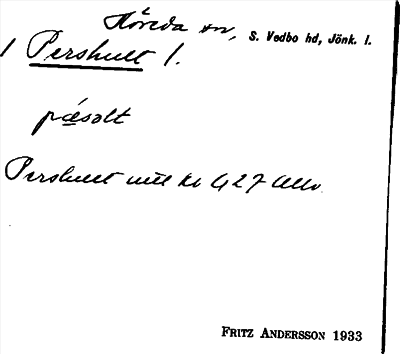 Höreda sn, S. Vedbo hd, Jönk. l.
1 Pershult 1.
pæsolt
Pershult mtl kr G 27 Allm
FRITZ ANDERSSON 1933